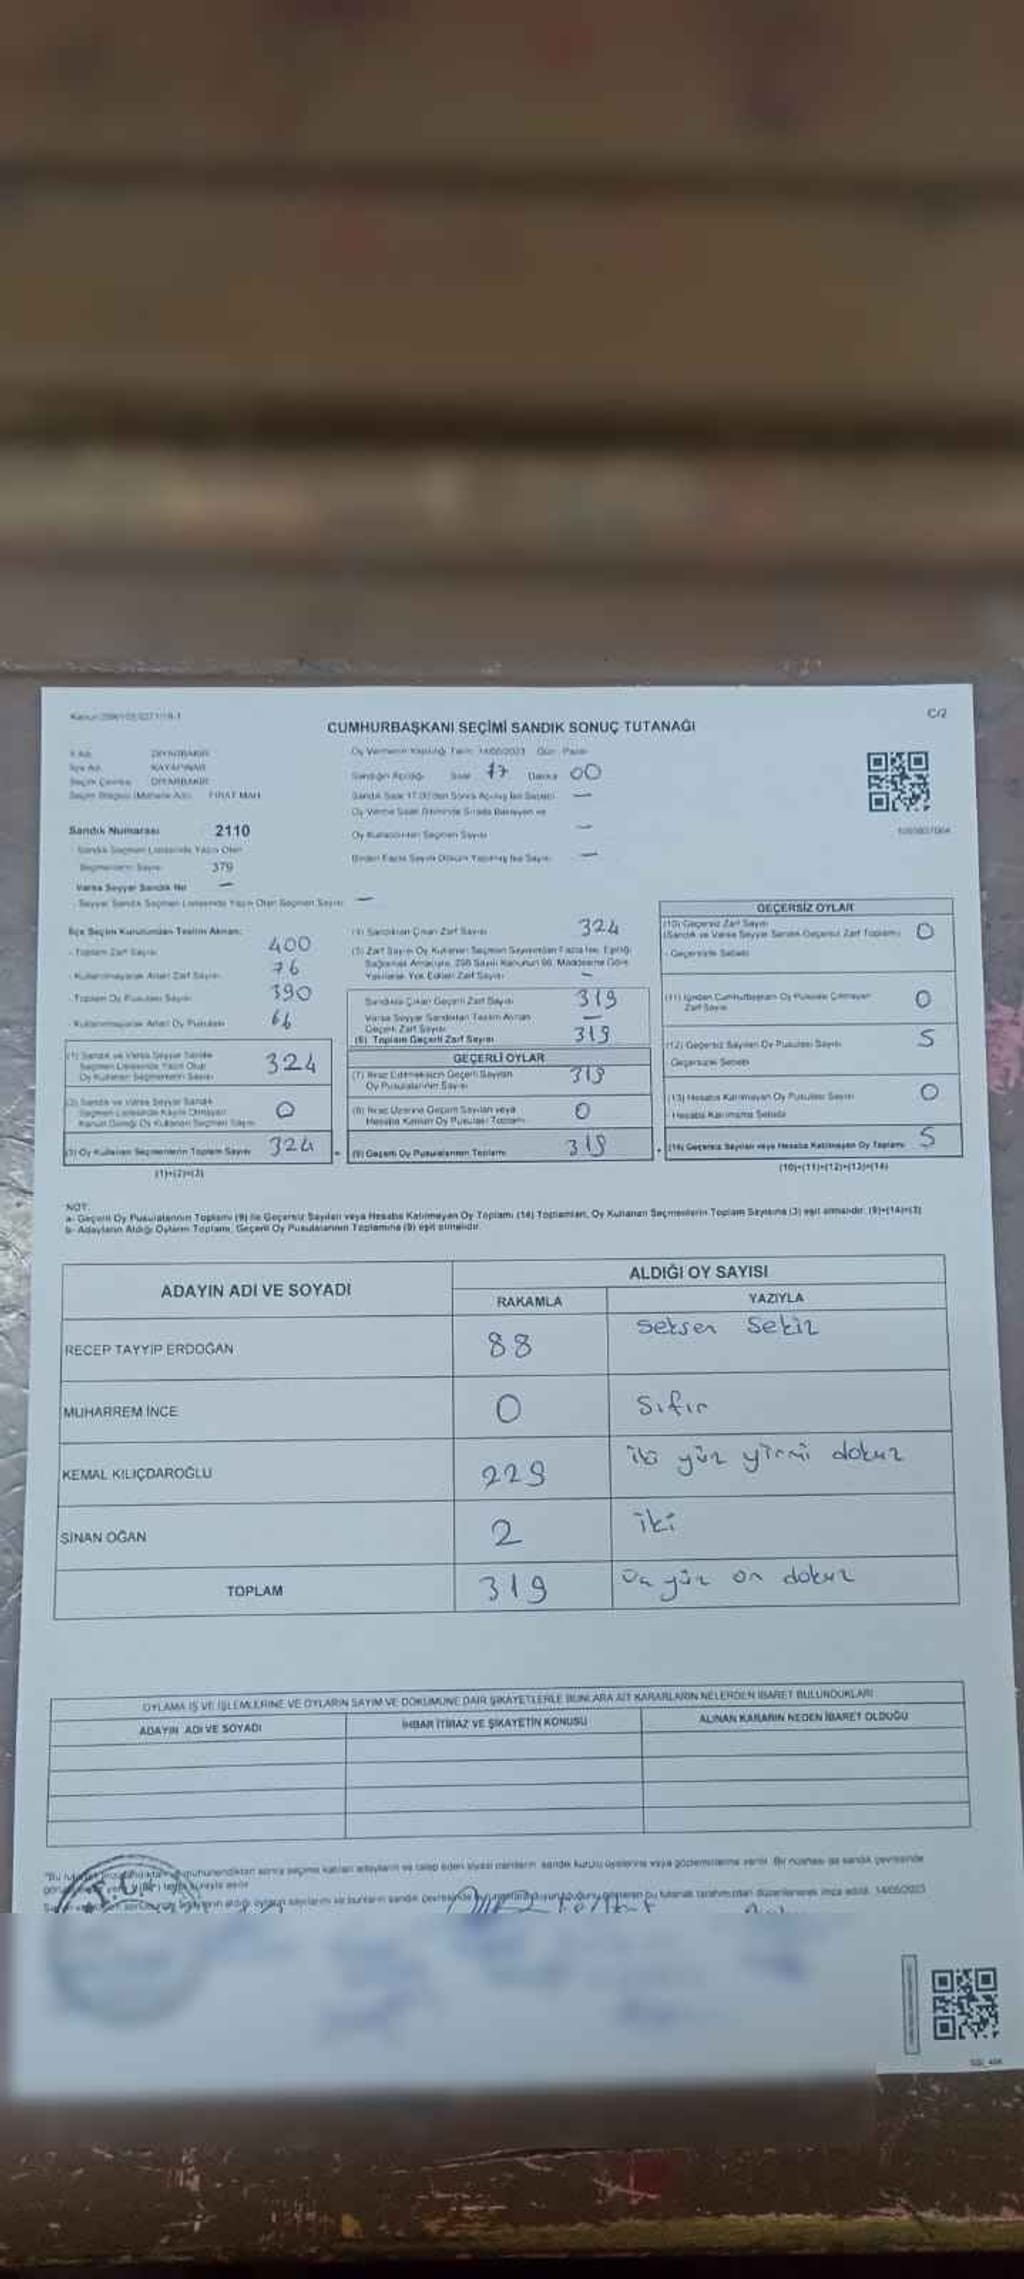 C/2
CUMHURBAŞKANI SEÇİMİ SANDIK SONUÇ TUTANAĞI
DİYARBAKIR
Oy Vermenin Yapıldığı Tarih: 14/05/2023 Gün: Pazar
KAYAPINAR
Sandığın Açıldığı Saat 17 Dakika 00
Seçim Çevresi DİYARBAKIR
FIRAT MAH.
Sandık Numarası 2110
Oy Kullandırılan Seçmen Sayısı —
- Sandık Seçmen Listesinde Yazılı Olan
Seçmenlerin Sayısı 379
Varsa Seyyar Sandık No —
- Seyyar Sandık Seçmen Listesinde Yazılı Olan Seçmen Sayısı —
İlçe Seçim Kurulundan Teslim Alınan;
- Toplam Zarf Sayısı 400
- Kullanılmayarak Artan Zarf Sayısı 76
- Toplam Oy Pusulası Sayısı 390
- Kullanılmayarak Artan Oy Pusulası 66
(1) Sandık ve Varsa Seyyar Sandık
Seçmen Listesinde Yazılı Olup
Oy Kullanan Seçmenlerin Sayısı 324
(2) Sandık ve Varsa Seyyar Sandık
Seçmen Listesinde Kayıtlı Olmayan
Kanun Gereği Oy Kullanan Seçmen Sayısı 0
(3) Oy Kullanan Seçmenlerin Toplam Sayısı 324
(1)+(2)=(3)
(4) Sandıktan Çıkan Zarf Sayısı 324
(5) Zarf Sayısı Oy Kullanan Seçmen Sayısından Fazla İse, Eşitliği
Sağlamak Amacıyla, 298 Sayılı Kanunun 98. Maddesine Göre
Yakılarak Yok Edilen Zarf Sayısı —
Sandıkta Çıkan Geçerli Zarf Sayısı 319
Varsa Seyyar Sandıktan Teslim Alınan
Geçerli Zarf Sayısı —
(6) Toplam Geçerli Zarf Sayısı 319
GEÇERLİ OYLAR
(7) İtiraz Edilmeksizin Geçerli Sayılan
Oy Pusulalarının Sayısı 319
(8) İtiraz Üzerine Geçerli Sayılan veya
Hesaba Katılan Oy Pusulası Toplamı 0
(9) Geçerli Oy Pusulalarının Toplamı 319
GEÇERSİZ OYLAR
(10) Geçersiz Zarf Sayısı
(Sandık ve Varsa Seyyar Sandık Geçersiz Zarf Toplamı) 0
- Geçersizlik Sebebi
(11) İçinden Cumhurbaşkanı Oy Pusulası Çıkmayan
Zarf Sayısı 0
(12) Geçersiz Sayılan Oy Pusulası Sayısı 5
- Geçersizlik Sebebi
(13) Hesaba Katılmayan Oy Pusulası Sayısı 0
- Hesaba Katılmama Sebebi
(14) Geçersiz Sayılan veya Hesaba Katılmayan Oy Toplamı 5
(10)+(11)+(12)+(13)=(14)
NOT:
a- Geçerli Oy Pusulalarının Toplamı (9) ile Geçersiz Sayılan veya Hesaba Katılmayan Oy Toplamı (14) Toplamları, Oy Kullanan Seçmenlerin Toplam Sayısına (3) eşit olmalıdır. (9)+(14)=(3)
b- Adayların Aldığı Oyların Toplamı, Geçerli Oy Pusulalarının Toplamına (9) eşit olmalıdır.
ADAYIN ADI VE SOYADI
ALDIĞI OY SAYISI
RAKAMLA YAZIYLA
RECEP TAYYİP ERDOĞAN 88 Seksen Sekiz
MUHARREM İNCE 0 Sıfır
KEMAL KILIÇDAROĞLU 229 iki yüz yirmi dokuz
SİNAN OĞAN 2 iki
TOPLAM 319 Üç yüz on dokuz
OYLAMA İŞ VE İŞLEMLERİNE VE OYLARIN SAYIM VE DÖKÜMÜNE DAİR ŞİKAYETLERLE BUNLARA AİT KARARLARIN NELERDEN İBARET BULUNDUKLARI
ADAYIN ADI VE SOYADI İHBAR İTİRAZ VE ŞİKAYETİN KONUSU ALINAN KARARIN NEDEN İBARET OLDUĞU